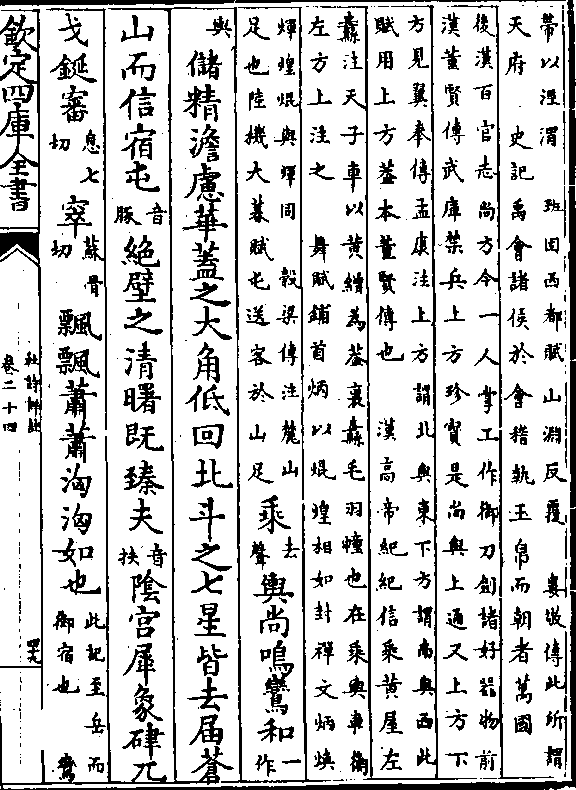 帶以涇渭　班固西都賦山淵反覆　婁敬傳此所謂
天府　史記禹會諸侯於會稽執玉帛而朝者萬國
後漢百官志尚方令一人掌工作御刀劍諸好器物前
漢董賢傳武庫禁兵上方珍寶是尚與上通又上方下
方見翼奉傳孟康注上方謂北與東下方謂南與西此
賦用上方蓋本董賢傳也　漢高帝紀紀信乘黃屋左
纛注天子車以黃繒為蓋裏纛毛羽幢也在乘輿車衡
左方上注之　舞賦鋪首炳以焜煌相如封禪文炳煥
煇煌焜與煇同　穀梁傳注麓山
足也陸機大暮賦屯送客於山足
乘去聲輿尚鳴鸞和一作
輿儲精澹慮華蓋之大角低回北斗之七星皆去屆蒼
山而信宿屯音豚絶壁之清曙既臻夫音扶陰宮犀象硉兀
戈鋋窸息七切窣蘇骨切飄飄蕭蕭洶洶如也此記至岳而御宿也　鸞
欽定四庫全書
杜詩詳註
卷二十四
四十九